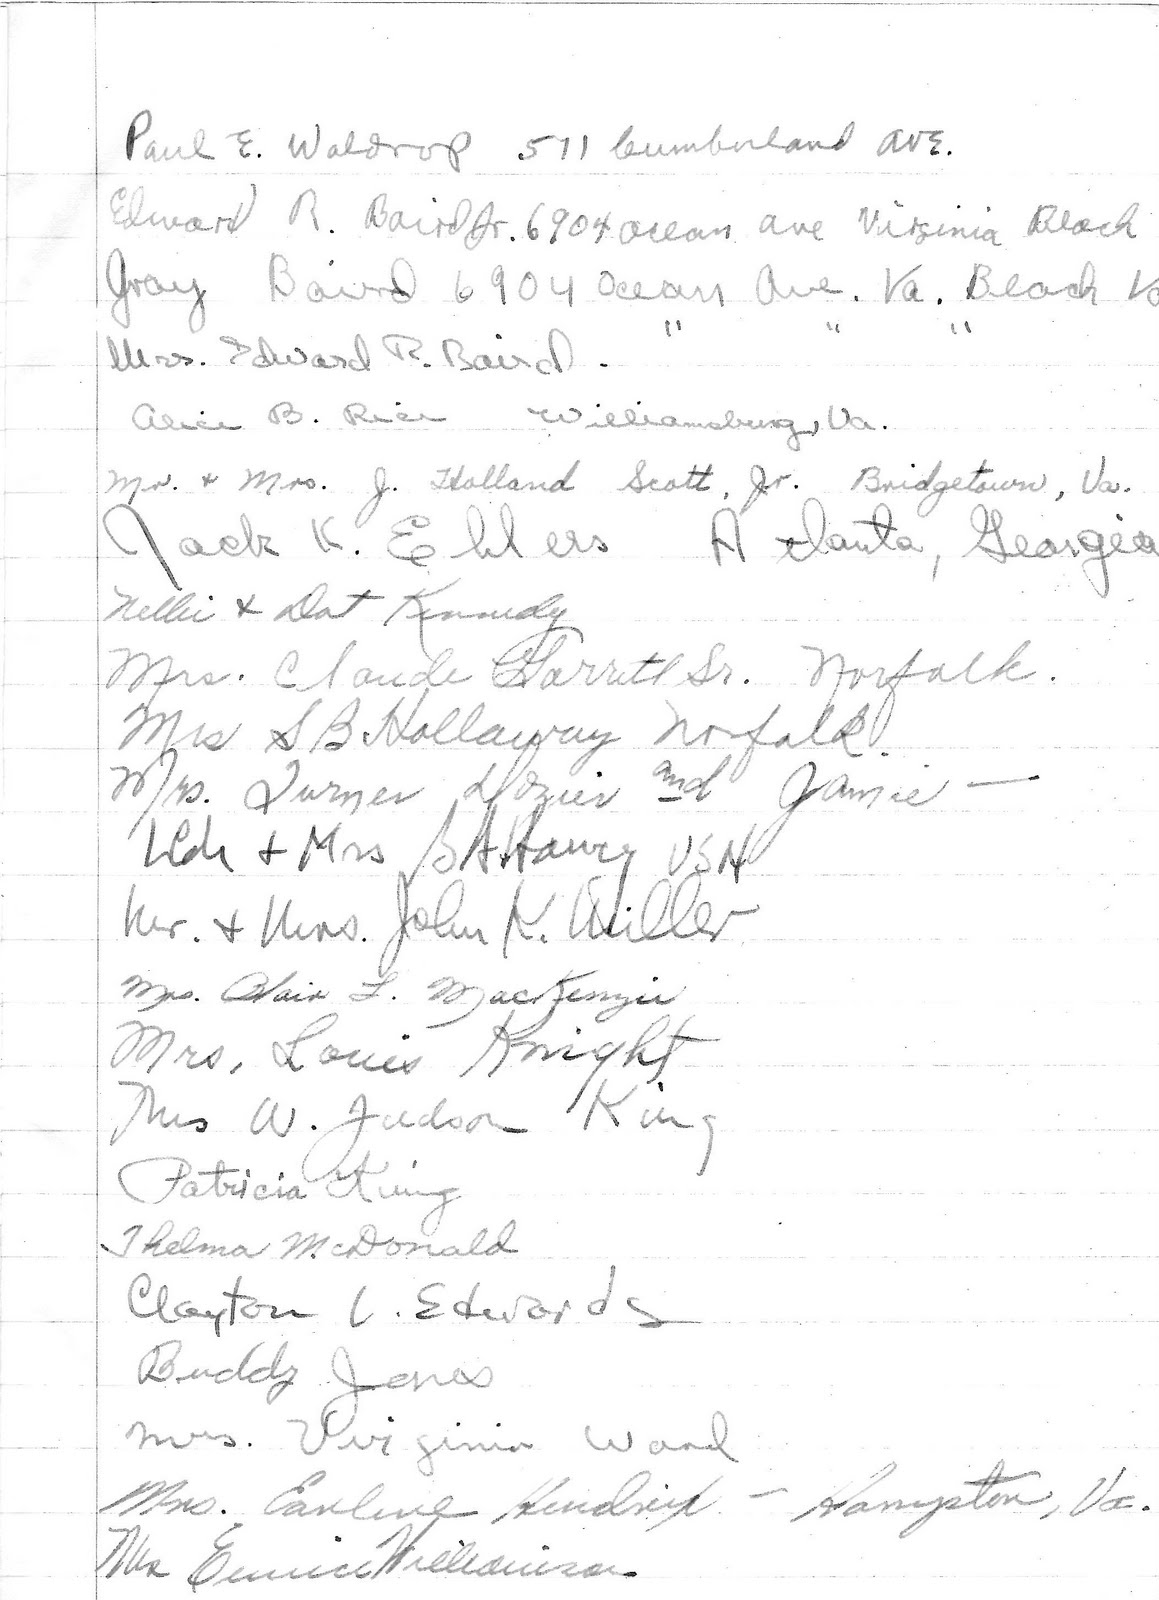 Paul E. Waldrop 511 Cumberland AVE.
Edward R. Baird Jr. 6904 ocean ave Virginia Beach
Gray Baird 6904 Ocean Ave. Va. Beach Va
" " "
Mrs. Edward R. Baird.
Alice B. Rice Williamsburg, Va.
Mr. & Mrs. J. Holland Scott, Jr. Bridgetown, Va.
Jack K. Ehlers Atlanta, Georgia
Nellie & Dot Kennedy
Mrs. Claude Garrett Sr. Norfolk.
Mrs S B Hollaway Norfolk.
Mrs. Turner Dozier and Jamie —
& Mrs USN
Mr. & Mrs. John K. Miller
Mrs. Clair L. MacKenzie
Mrs. Louis Knight
Mrs W. Judson King
Patricia King
Thelma McDonald
Clayton L. Edwards
Buddy Jones
Mrs. Virginia Ward
Mrs. Earline Hendrix — Hampton, Va.
Mrs Eunice Williamson